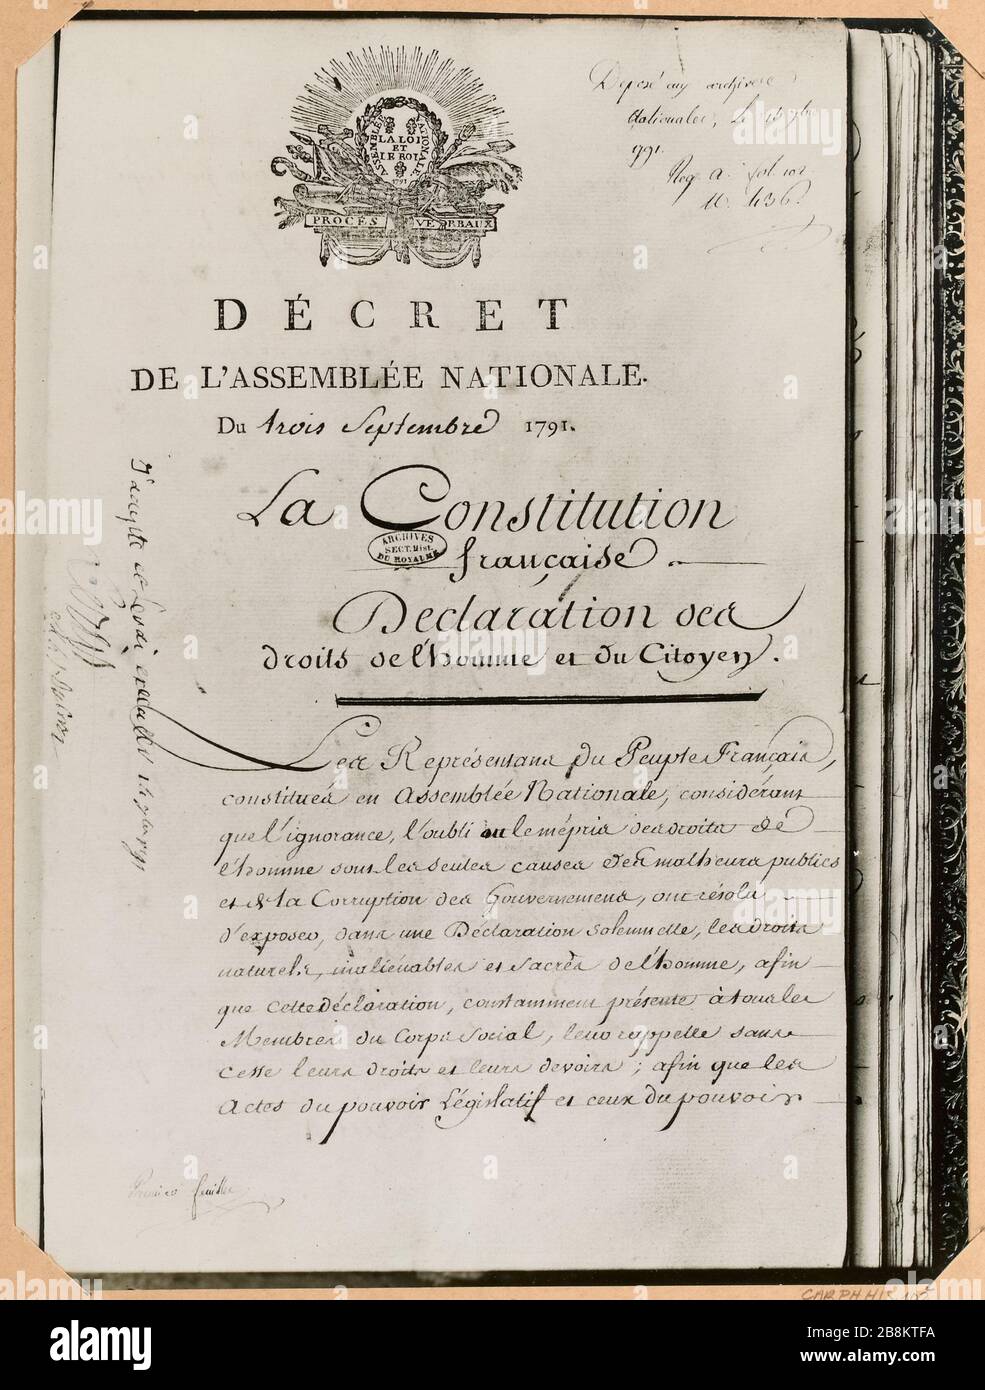 Déposé aux archives
nationales, le
1791.
Reg. A. fol. 102
N. 436.
ASSEMBLÉE NATIONALE
LA LOI
ET
LE ROI
1791
PROCÈS VERBAUX
DÉCRET
DE L'ASSEMBLÉE NATIONALE.
Du trois Septembre 1791.
La Constitution
française
ARCHIVES
SECT. Hist.
DU ROYAUME
Déclaration des
droits de l'homme et du Citoyen.
Les Représentans du Peuple Français,
constitués en Assemblée Nationale, considérant
que l'ignorance, l'oubli ou le mépris des droits de
l'homme sont les seules causes des malheurs publics
et de la Corruption des Gouvernemens, ont résolu
d'exposer, dans une Déclaration solennelle, les droits
naturels, inaliénables et sacrés de l'homme, afin
que cette déclaration, constamment présente à tous les
Membres du Corps Social, leur rappelle sans
cesse leurs droits et leurs devoirs ; afin que les
Actes du pouvoir Législatif et ceux du pouvoir
J'accepte et ferai exécuter
Première feuille
alamy
CARPH.HIS.
alamy
Image ID: 2B8KTFA
www.alamy.com